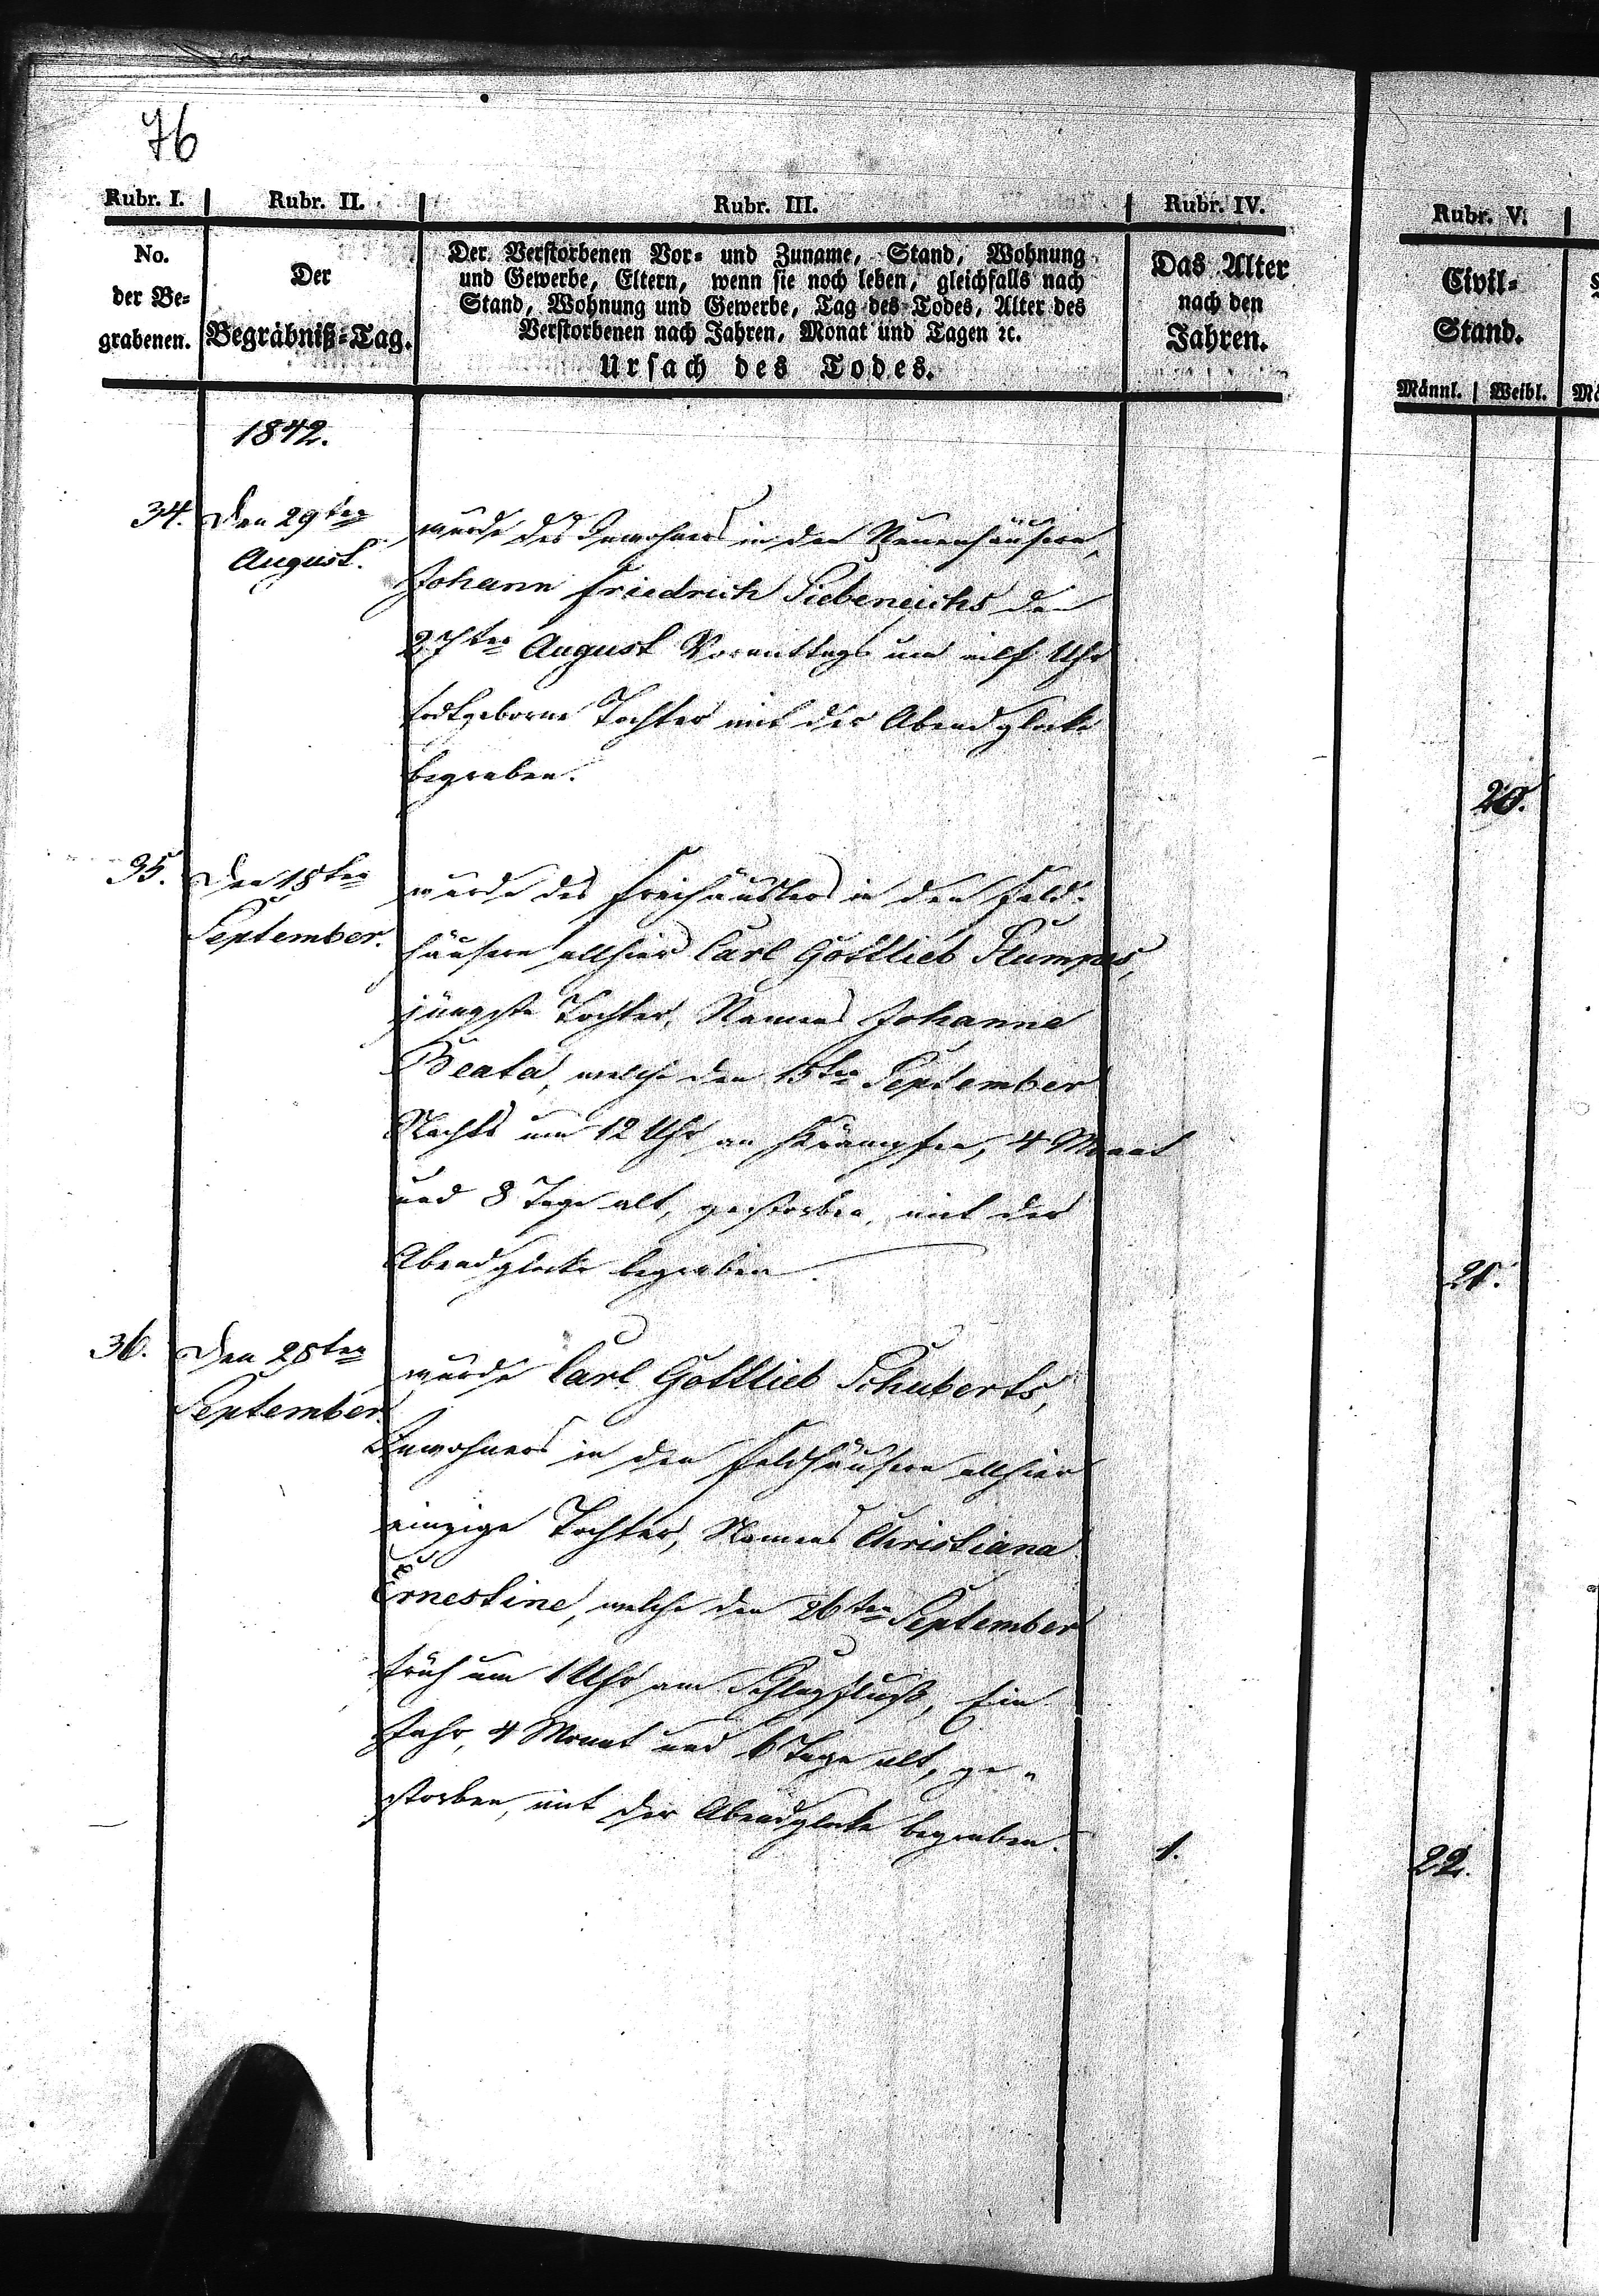 76
Rubr. I. Rubr. II. Rubr. III. Rubr. IV. Rubr. V.
No. der Be- grabenen.
Der Begräbniß-Tag.
Der Verstorbenen Vor- und Zuname, Stand, Wohnung
und Gewerbe, Eltern, wenn sie noch leben, gleichfalls nach
Stand, Wohnung und Gewerbe, Tag des Todes, Alter des
Verstorbenen nach Jahren, Monat und Tagen ꝛc.
Ursach des Todes.
Das Alter
nach den
Jahren.
Civil-
Stand.
Männl. Weibl.
1842.
34. Den 29ten
August.
wurde des Inwohners in den Neuenhäusern,
Johann Friedrich Siebeneichs den
27ten August Vormittags um eilf Uhr
todtgeborne Tochter mit der Abendglocke
begraben.
20.
35. Den 18ten
September.
wurde des Freihäuslers in den Feld-
häusern allhier Carl Gottlieb
jüngste Tochter, Namens Johanne
Beata, welche den 15ten September
Nachts um 12 Uhr an Krämpfen, 4 Monat
und 8 Tage alt, gestorben, mit der
Abendglocke begraben.
21.
36. Den 28ten
September.
wurde Carl Gottlieb Schuberts,
Inwohners in den Feldhäusern allhier
einzige Tochter, Namens Christiana
Ernestine, welche den 26ten September
früh um 1 Uhr am Schlagfluß, Ein
Jahr, 4 Monat und 6 Tage alt, ge-
storben, mit der Abendglocke begraben.
1.
22.